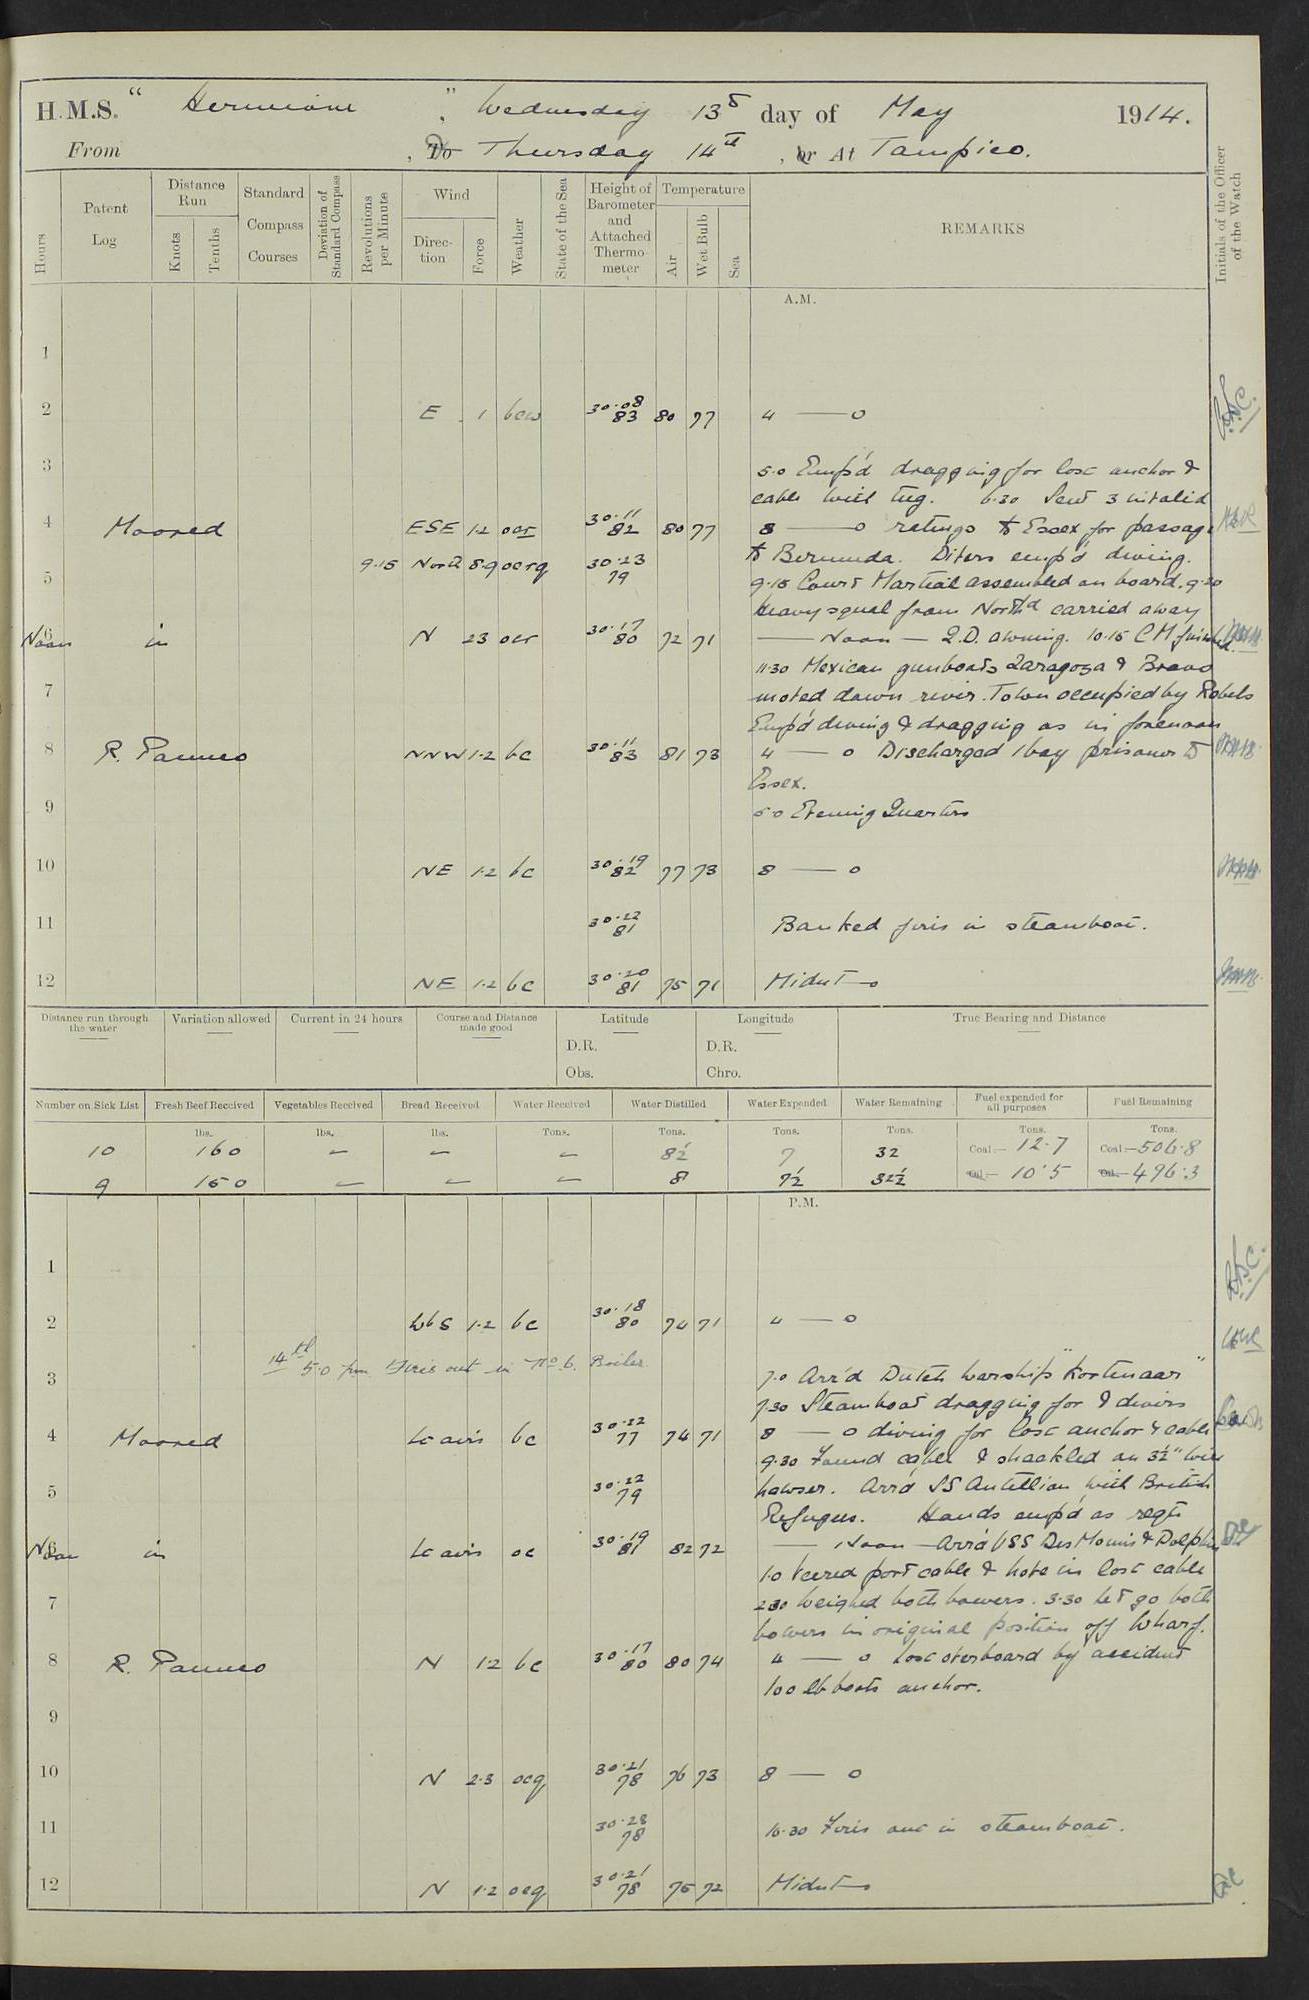 H.M.S. " Hermione ", Wednesday 13th day of May 1914.
From , To Thursday 14th , or At Tampico.
Hours
Patent Log
Distance Run
Knots
Tenths
Standard Compass Courses
Deviation of Standard Compass
Revolutions per Minute
Wind
Direction
Force
Weather
State of the Sea
Height of Barometer and Attached Thermometer
Temperature
Air
Wet Bulb
Sea
REMARKS
Initials of the Officer of the Watch
A.M.
1
2 E 1 bcw 30.08 83 80 77 4 — o
3 5.0 Emp'd dragging for lost anchor &
cable with tug. 6.30 Sent 3 invalid
4 Moored ESE 1.2 ocr 30.11 82 80 77 8 — o ratings to Essex for passage
to Bermuda. Divers emp'd diving.
5 9.15 North 8.9 ocrq 30.23 79
9.15 Court Martial assembled on board. 9.20
Heavy squal from North'd carried away
6 Noon in N 23 ocr 30.17 80 72 71 — Noon — Q.D. awning. 10.15 CM finished.
11.30 Mexican gunboats Zaragoza & Bravo
7 moved down river. Town occupied by Rebels
Emp'd diving & dragging as in forenoon
8 R. Panuco NNW 1.2 bc 30.11 83 81 73 4 — o Discharged 1 boy prisoner to
Essex.
9 5.0 Evening Quarters
10 NE 1.2 bc 30.19 82 77 73 8 — o
11 30.22 81 Banked fires in steamboat.
12 NE 1.2 bc 30.20 81 75 71 Midnt — o
Distance run through the water
Variation allowed
Current in 24 hours
Course and Distance made good
Latitude
D.R.
Obs.
Longitude
D.R.
Chro.
True Bearing and Distance
Number on Sick List
Fresh Beef Received
Vegetables Received
Bread Received
Water Received
Water Distilled
Water Expended
Water Remaining
Fuel expended for all purposes
Fuel Remaining
lbs. lbs. lbs. Tons. Tons. Tons. Tons. Tons. Tons.
10 160 — — — 8½ 7 32 Coal— 12.7 Coal—506.8
9 150 — — — 8 7½ 32½ Oil— 10.5 Oil—496.3
P.M.
1
2 WbS 1.2 bc 30.18 80 74 71 4 — o
14th 5.0 pm Fires out in No. 6. Boiler
3 7.0 Arr'd Dutch Warship "Kortenaar"
7.30 Steamboat dragging for & divers
4 Moored Lt airs bc 30.22 77 74 71 8 — o diving for lost anchor & cable
9.30 Found cable & shackled on 3½" wire
5 30.22 79 hawser. Arr'd SS Antillian with British
Refugees. Hands emp'd as reqte
6 Noon in Lt airs oc 30.19 81 82 72 — Noon — Arr'd USS Des Moines & Dolphin
1.0 Veered port cable & hove in lost cable
7 2.30 Weighed both bowers. 3.30 let go both
bowers in original position off Wharf.
8 R. Panuco N 12 bc 30.17 80 80 74 4 — o Lost overboard by accident
100 lb boats anchor.
9
10 N 2.3 ocq 30.21 78 76 73 8 — o
11 30.23 78 10.30 Fires out in steamboat.
12 N 1.2 ocq 30.21 78 75 72 Midnt — o